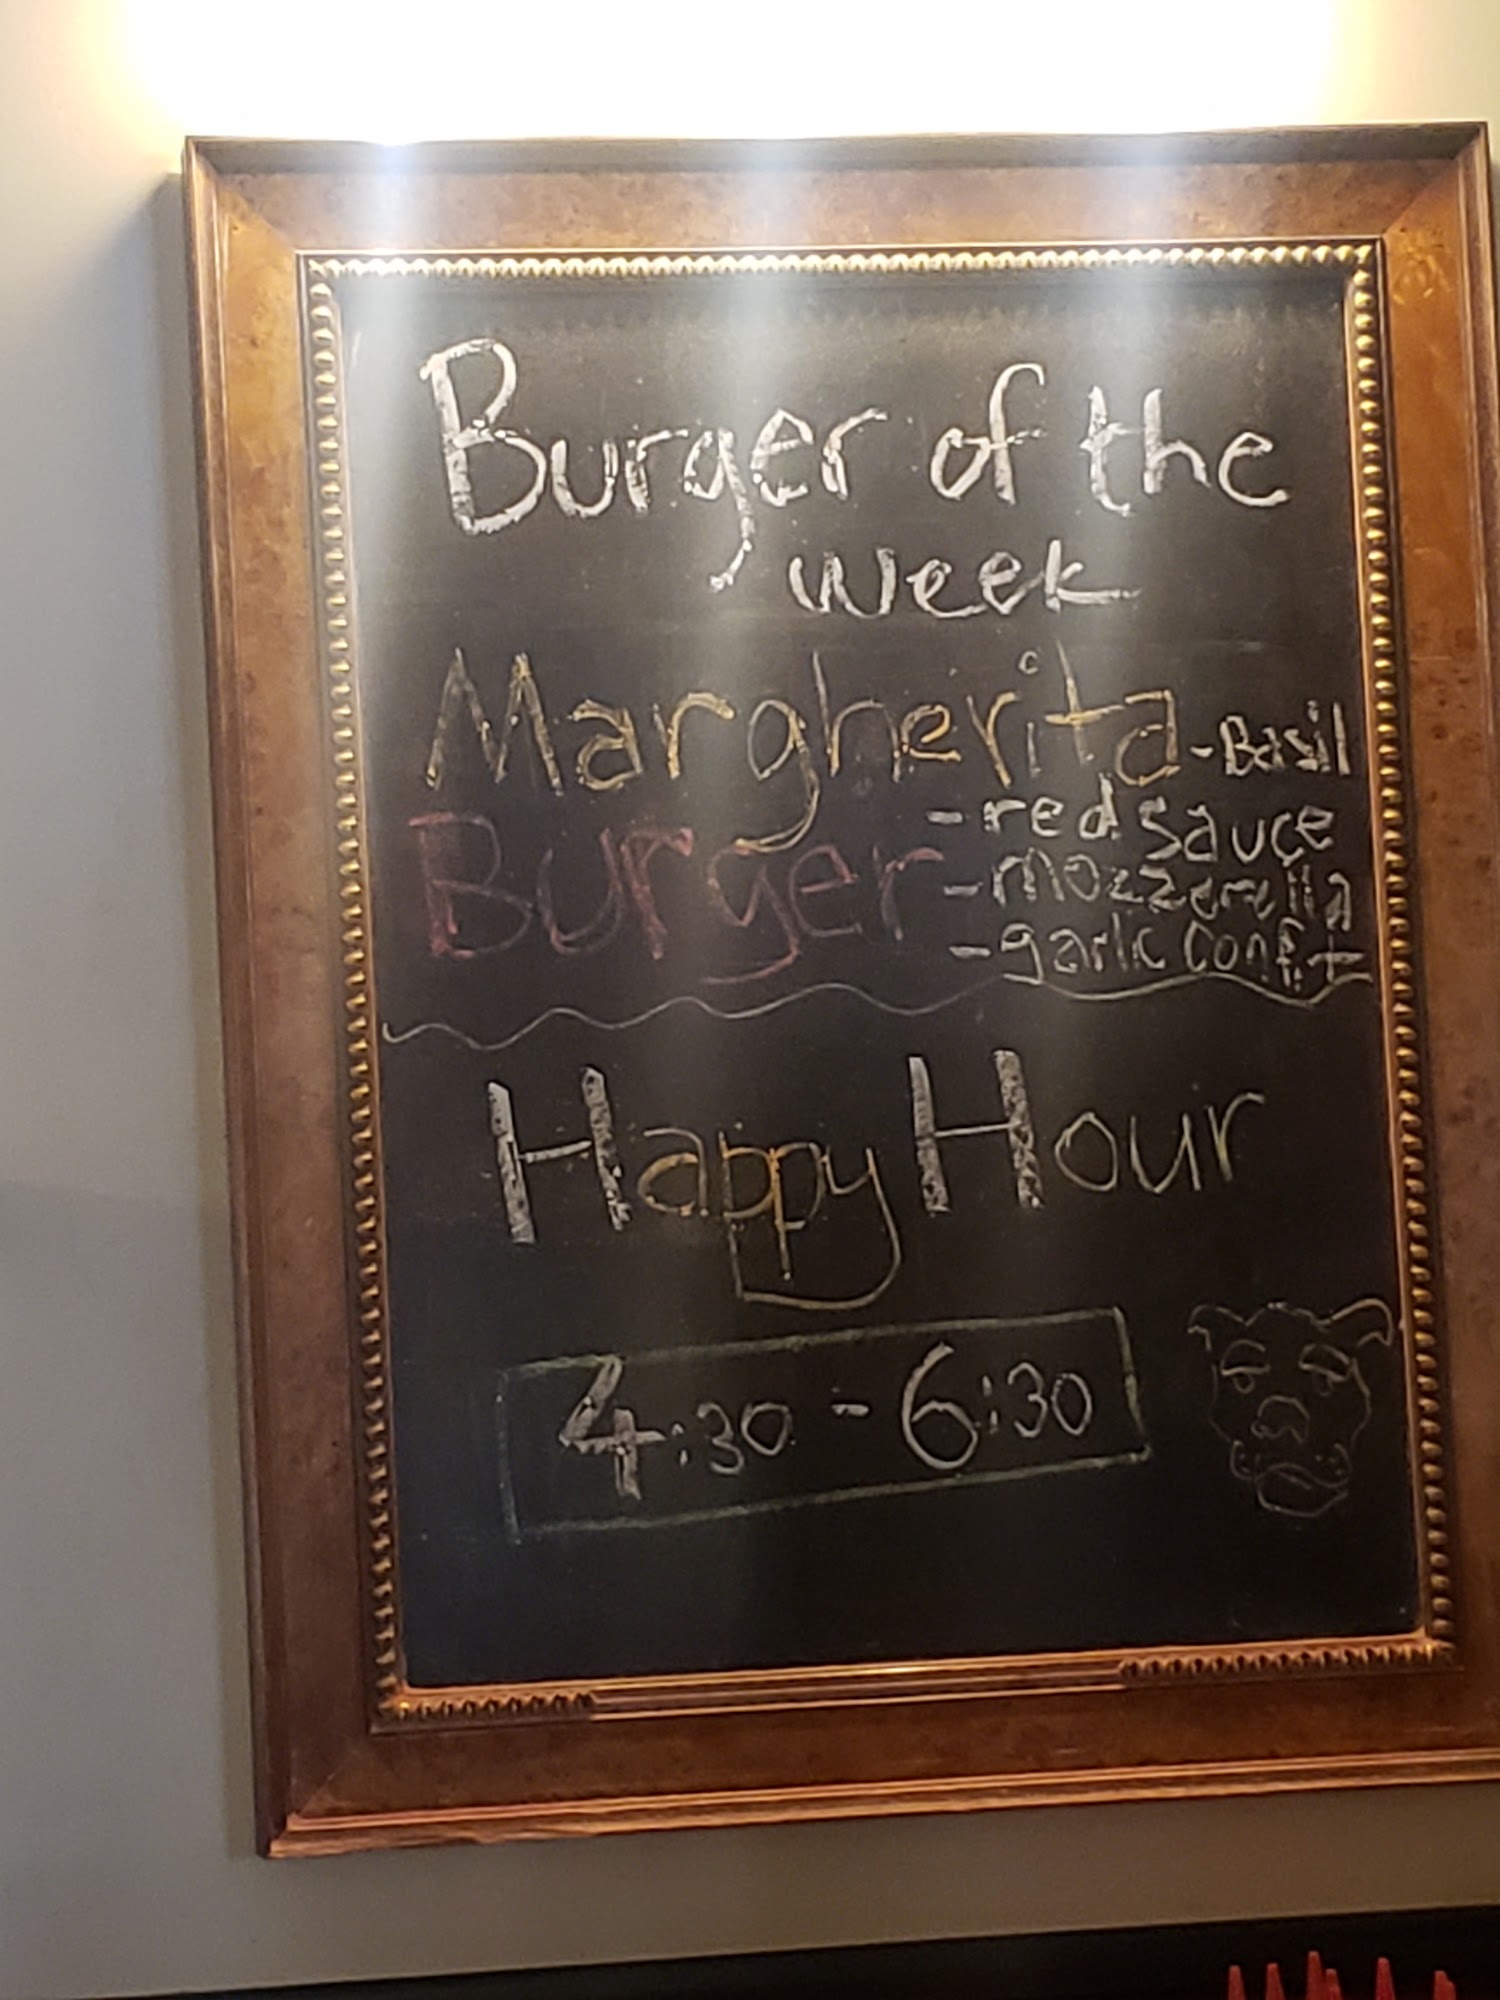 Burger of the
week
Margherita - Basil
Burger - red sauce
- mozzerella
- garlic confit
Happy Hour
4:30 - 6:30